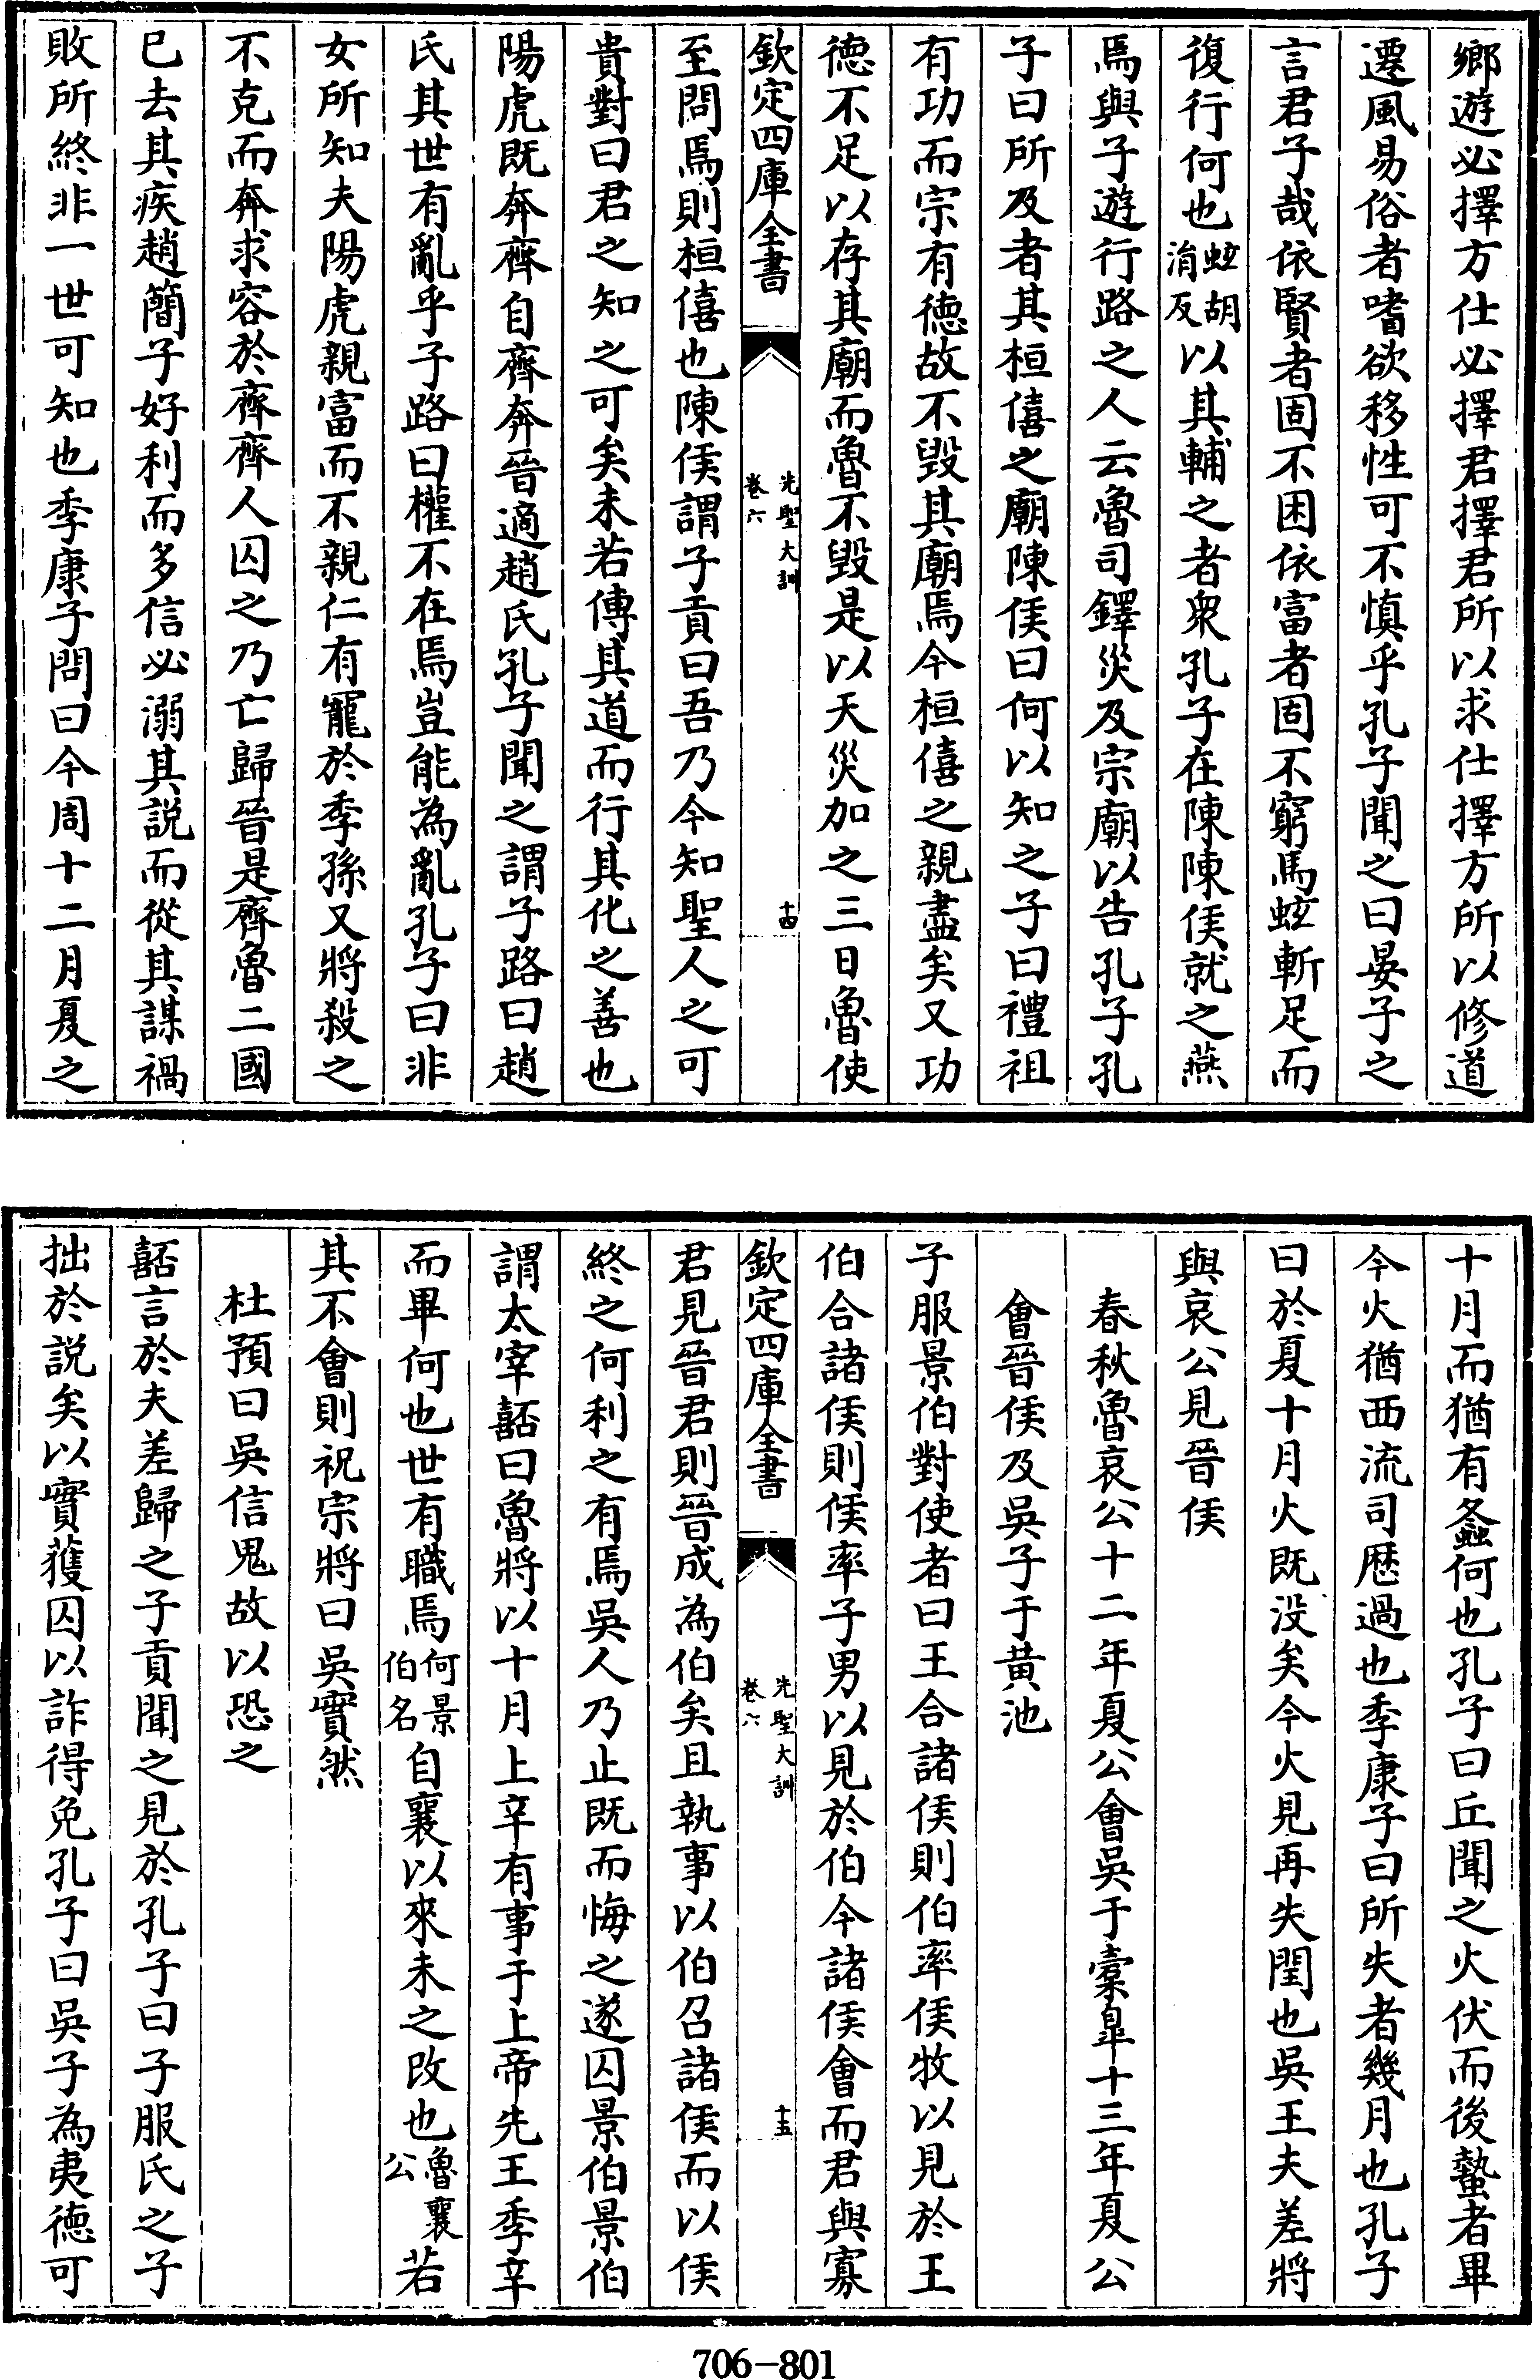 鄉遊必擇方仕必擇君擇君所以求仕擇方所以修道
遷風易俗者嗜欲移性可不慎乎孔子聞之曰晏子之
言君子哉依賢者固不困依富者固不窮馬蚿斬足而
復行何也蚿胡涓反以其輔之者衆孔子在陳陳侯就之燕
焉與子遊行路之人云魯司鐸災及宗廟以告孔子孔
子曰所及者其桓僖之廟陳侯曰何以知之子曰禮祖
有功而宗有德故不毀其廟焉今桓僖之親盡矣又功
德不足以存其廟而魯不毀是以天災加之三日魯使
欽定四庫全書
先聖大訓
卷六
十四
至問焉則桓僖也陳侯謂子貢曰吾乃今知聖人之可
貴對曰君之知之可矣未若傳其道而行其化之善也
陽虎既奔齊自齊奔晉適趙氏孔子聞之謂子路曰趙
氏其世有亂乎子路曰權不在焉豈能為亂孔子曰非
女所知夫陽虎親富而不親仁有寵於季孫又將殺之
不克而奔求容於齊齊人囚之乃亡歸晉是齊魯二國
已去其疾趙簡子好利而多信必溺其說而從其謀禍
敗所終非一世可知也季康子問曰今周十二月夏之
十月而猶有螽何也孔子曰丘聞之火伏而後蟄者畢
今火猶西流司厯過也季康子曰所失者幾月也孔子
曰於夏十月火既沒矣今火見再失閏也吳王夫差將
與哀公見晉侯
春秋魯哀公十二年夏公會吳于橐臯十三年夏公
會晉侯及吳子于黄池
子服景伯對使者曰王合諸侯則伯率侯牧以見於王
伯合諸侯則侯率子男以見於伯今諸侯會而君與寡
欽定四庫全書
先聖大訓
卷六
十五
君見晉君則晉成為伯矣且執事以伯召諸侯而以侯
終之何利之有焉吳人乃止既而悔之遂囚景伯景伯
謂太宰嚭曰魯將以十月上辛有事于上帝先王季辛
而畢何也世有職焉何景伯名自襄以來未之改也魯襄公若
其不會則祝宗將曰吳實然
杜預曰吳信鬼故以恐之
嚭言於夫差歸之子貢聞之見於孔子曰子服氏之子
拙於說矣以實獲囚以詐得免孔子曰吳子為夷德可
706-801